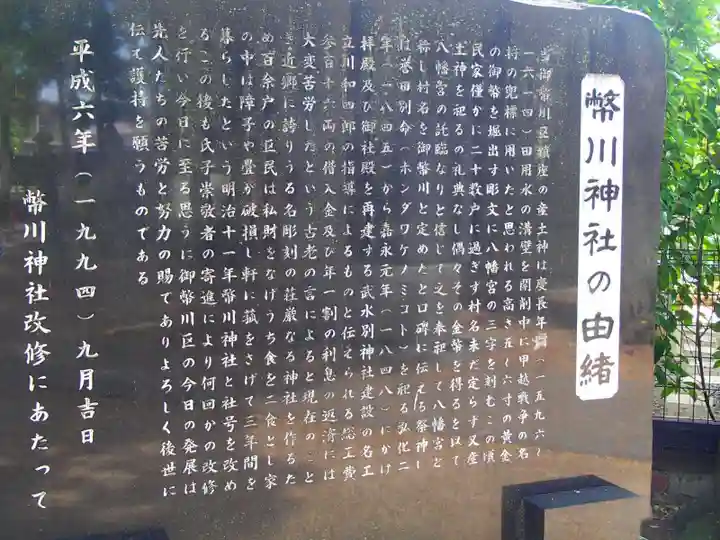 幣川神社の由緒
当御幣川区鎮座の産土神は慶長年間(一五九六~
一六一四)田用水の溝壁を開削中に甲越戦争の名
将の兜標に用いたと思われる高さ五~六寸の黄金
の御幣を堀出す彫文に八幡宮の三字を刻むこの頃
民家僅かに二十数戸に過ぎず村名未だ定らず又産
土神を祀るの礼典なし偶々その金幣を得るを以て
八幡宮の託臨なりと信じて之を奉祀して八幡宮と
称し村名を御幣川と定めたと口碑に伝える祭神し
は誉田別命(ホンダワケノミコト)を祀る弘化二
年(一八四五)から嘉永元年(一八四八)にかけ
拝殿及び御社殿を再建する武水別神社建設の名工
立川和四郎の指導によるものと伝えられる総工費
参百十六両の借入金及び年一割の利息の返済には
大変苦労したという古老の言によると現在のこと
近郷に誇りうる名彫刻の荘厳なる神社を作るた
め百余戸の区民は私財をなげうち食を二食とし家
の中は障子や畳が破損し軒に菰をさげて三年間を
暮らしたという明治十一年幣川神社と社号を改め
るこの後も氏子崇敬者の寄進により何回かの改修
を行い今日に至る思うに御幣川区の今日の発展は
先人たちの苦労と努力の賜でありよろしく後世に
伝て護持を願うものである
平成六年(一九九四)九月吉日
幣川神社改修にあたって